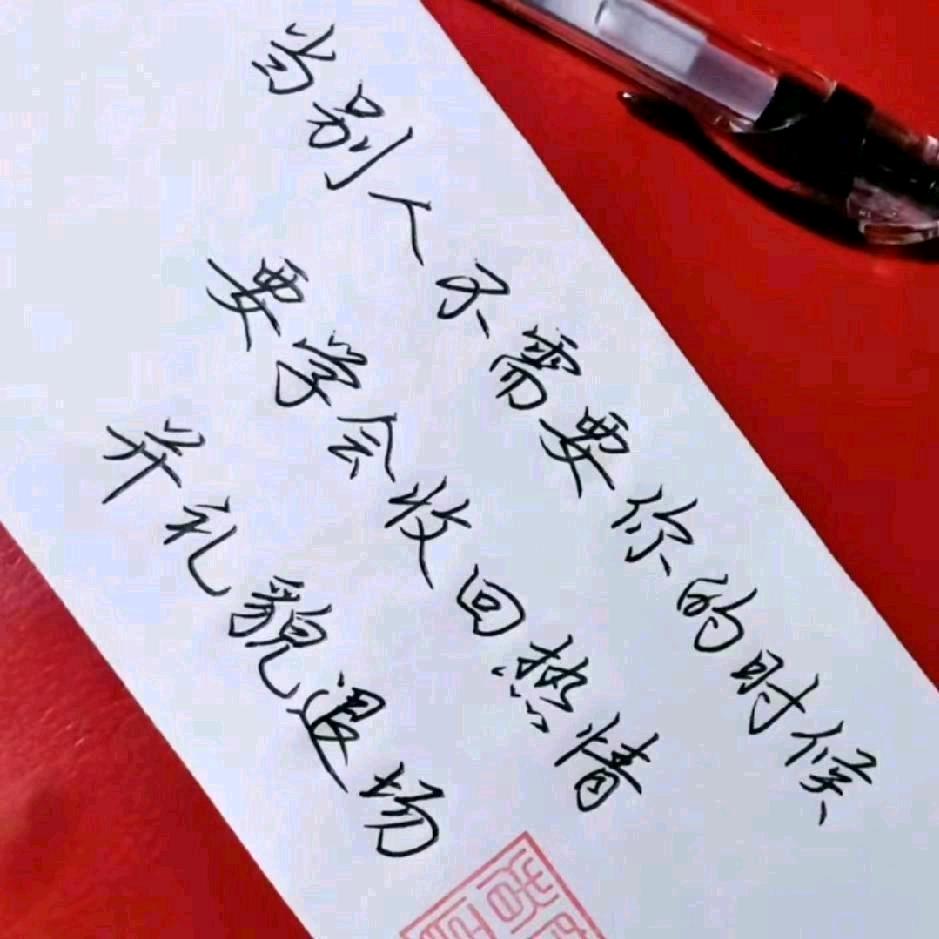 当别人不需要你的时候
要学会收回热情
并礼貌退场